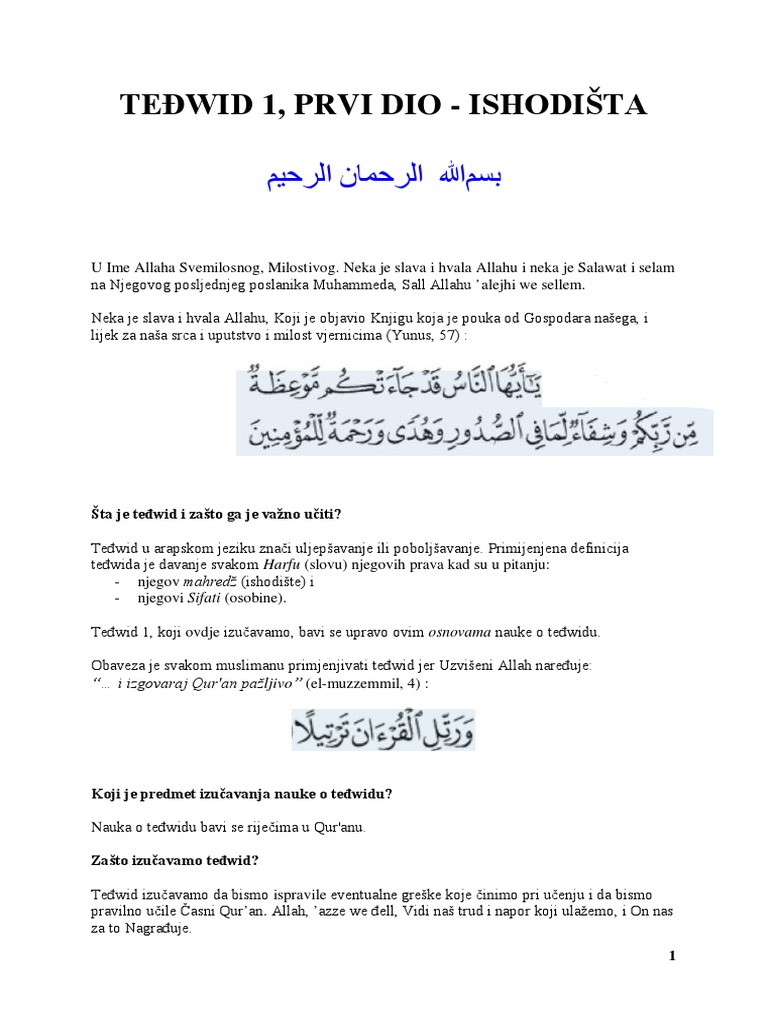 TEĐWID 1, PRVI DIO - ISHODIŠTA
بسم الله الرحمان الرحيم
U Ime Allaha Svemilosnog, Milostivog. Neka je slava i hvala Allahu i neka je Salawat i selam
na Njegovog posljednjeg poslanika Muhammeda, Sall Allahu ’alejhi we sellem.
Neka je slava i hvala Allahu, Koji je objavio Knjigu koja je pouka od Gospodara našega, i
lijek za naša srca i uputstvo i milost vjernicima (Yunus, 57) :
يَـٰٓأَيُّهَا ٱلنَّاسُ قَدْ جَآءَتْكُم مَّوْعِظَةٌ
مِّن رَّبِّكُمْ وَشِفَآءٌ لِّمَا فِى ٱلصُّدُورِ وَهُدًى وَرَحْمَةٌ لِّلْمُؤْمِنِينَ
Šta je teđwid i zašto ga je važno učiti?
Teđwid u arapskom jeziku znači uljepšavanje ili poboljšavanje. Primijenjena definicija
teđwida je davanje svakom Harfu (slovu) njegovih prava kad su u pitanju:
- njegov mahredž (ishodište) i
- njegovi Sifati (osobine).
Teđwid 1, koji ovdje izučavamo, bavi se upravo ovim osnovama nauke o teđwidu.
Obaveza je svakom muslimanu primjenjivati teđwid jer Uzvišeni Allah naređuje:
“... i izgovaraj Qur'an pažljivo” (el-muzzemmil, 4) :
وَرَتِّلِ ٱلْقُرْءَانَ تَرْتِيلًا
Koji je predmet izučavanja nauke o teđwidu?
Nauka o teđwidu bavi se riječima u Qur'anu.
Zašto izučavamo teđwid?
Teđwid izučavamo da bismo ispravile eventualne greške koje činimo pri učenju i da bismo
pravilno učile Časni Qur’an. Allah, ’azze we đell, Vidi naš trud i napor koji ulažemo, i On nas
za to Nagrađuje.
1